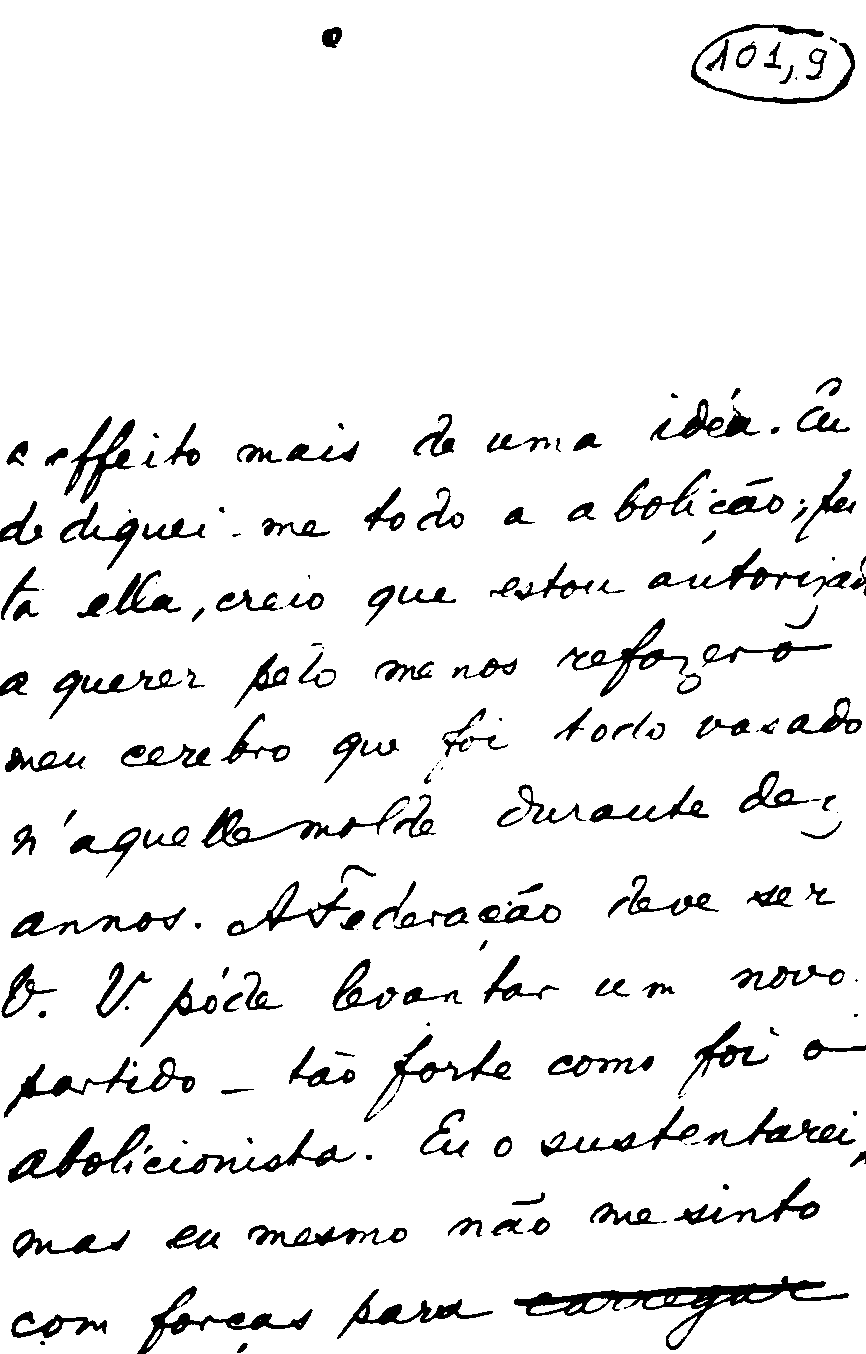 101,9
a effeito mais de uma idéa. Eu
dediquei-me todo a abolição; fei
ta ella, creio que estou autorizado
a querer pelo menos refazer o
meu cerebro que foi todo vasado
n'aquelle molde durante dez
annos. A Federação deve ser
V. V. póde levantar um novo
partido - tão forte como foi o
abolicionista. Eu o sustentarei,
mas eu mesmo não me sinto
com forças para carregar